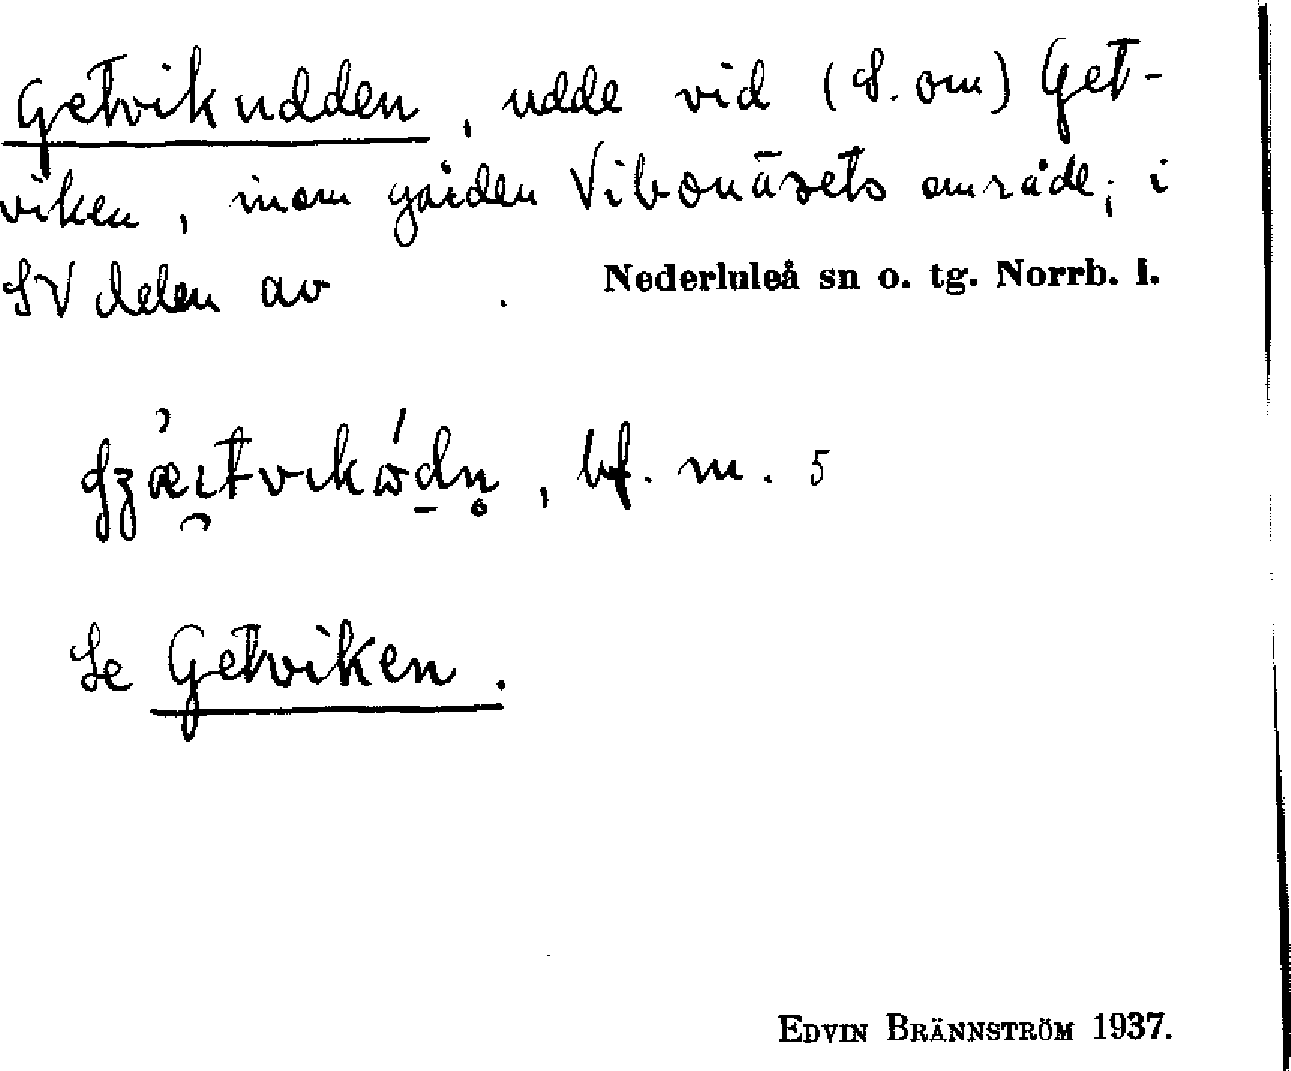 Getvikudden, udde vid (S. om) Get-
viken, inom gården Vibonäsets område; i
SV delen av . Nederluleå sn o. tg. Norrb. l.
bf. m. 5
Se Getviken.
EDVIN BRÄNNSTRÖM 1937.